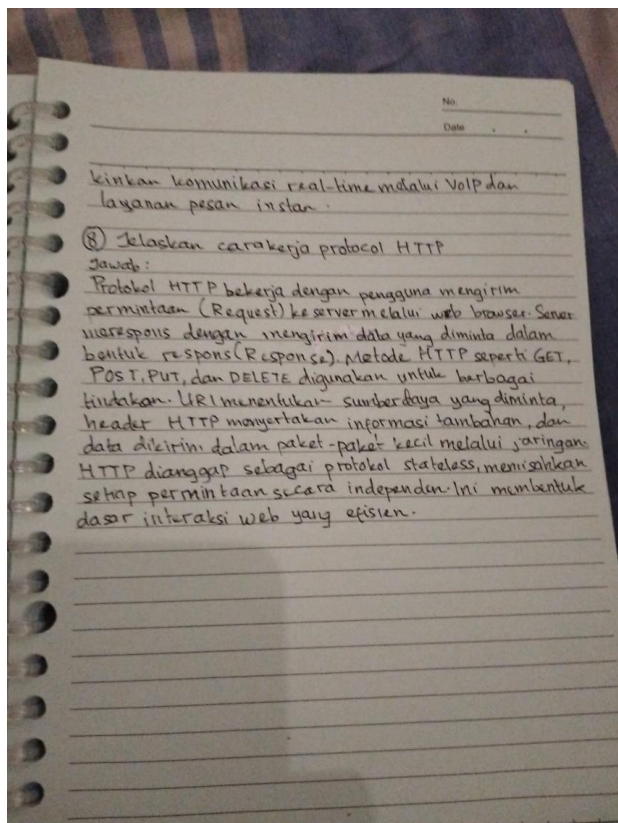 No.
Date . .
kinkan komunikasi real-time melalui VoIP dan
layanan pesan instan.
⑧ Jelaskan carakerja protocol HTTP
Jawab :
Protokol HTTP bekerja dengan pengguna mengirim
permintaan (Request) ke server melalui web browser. Server
merespons dengan mengirim data yang diminta dalam
bentuk respons (Response). Metode HTTP seperti GET,
POST, PUT, dan DELETE digunakan untuk berbagai
tindakan. URI menentukan sumber daya yang diminta,
header HTTP menyertakan informasi tambahan, dan
data dikirim dalam paket-paket kecil melalui jaringan.
HTTP dianggap sebagai protokol stateless, memisahkan
setiap permintaan secara independen. Ini membentuk
dasar interaksi web yang efisien.